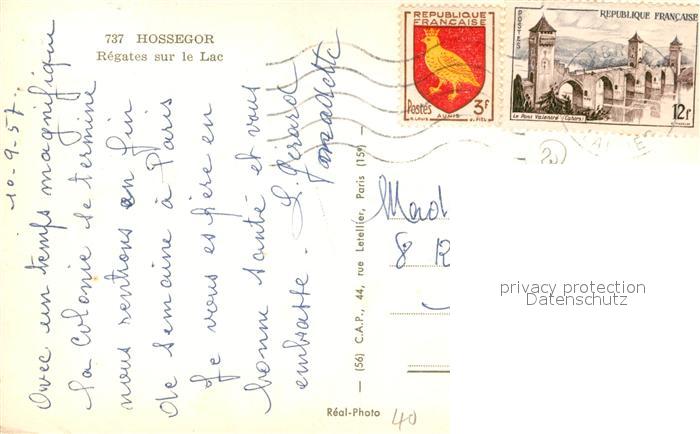 737 HOSSEGOR
Régates sur le Lac
10-9-57.
Avec un temps magnifique
la colonie se termine
nous rentrons en fin
de semaine à Paris
Je vous espère en
bonne santé et vous
embrasse. G. Gérard
RÉPUBLIQUE
FRANÇAISE
Postes 3F
AUNIS
RÉPUBLIQUE FRANÇAISE
POSTES
12F
Le Pont Valentré (Cahors)
Mad
8
(56) C.A.P., 44, rue Letellier, Paris (15e) —
privacy protection
Datenschutz
Réal-Photo
40